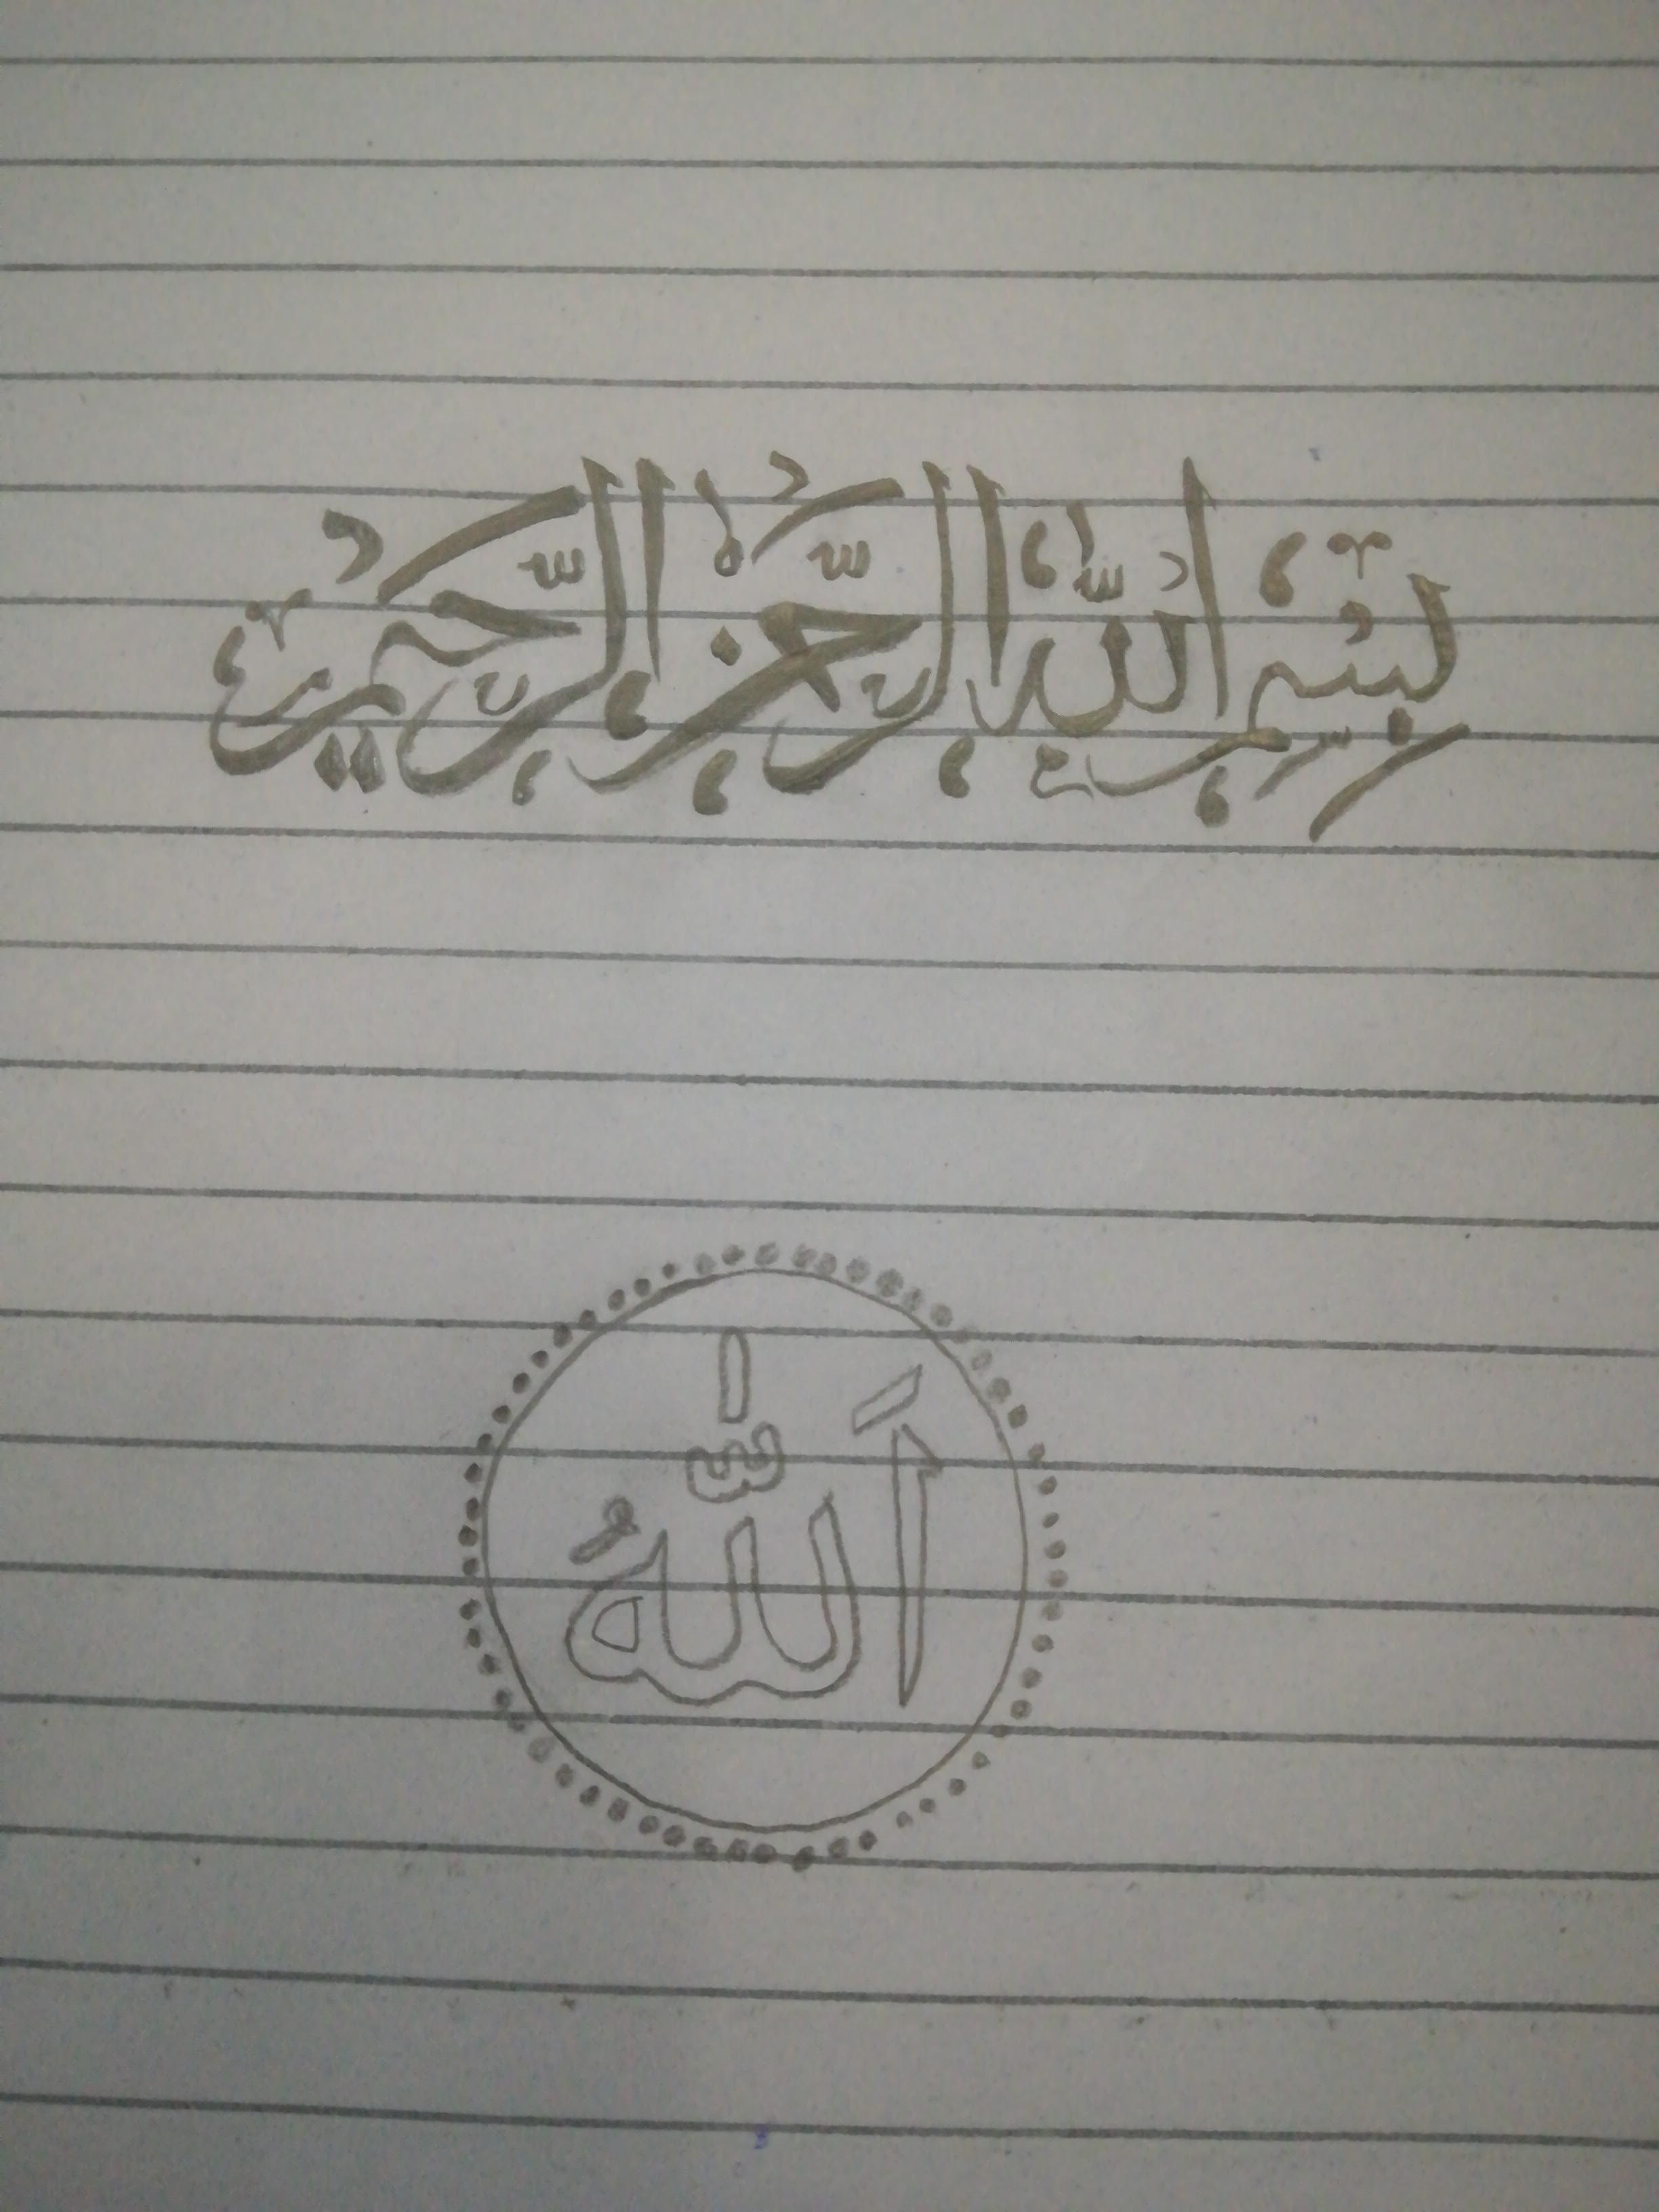 بِسْمِ اللَّهِ الرَّحْمَٰنِ الرَّحِيمِ
اَللّٰهُ